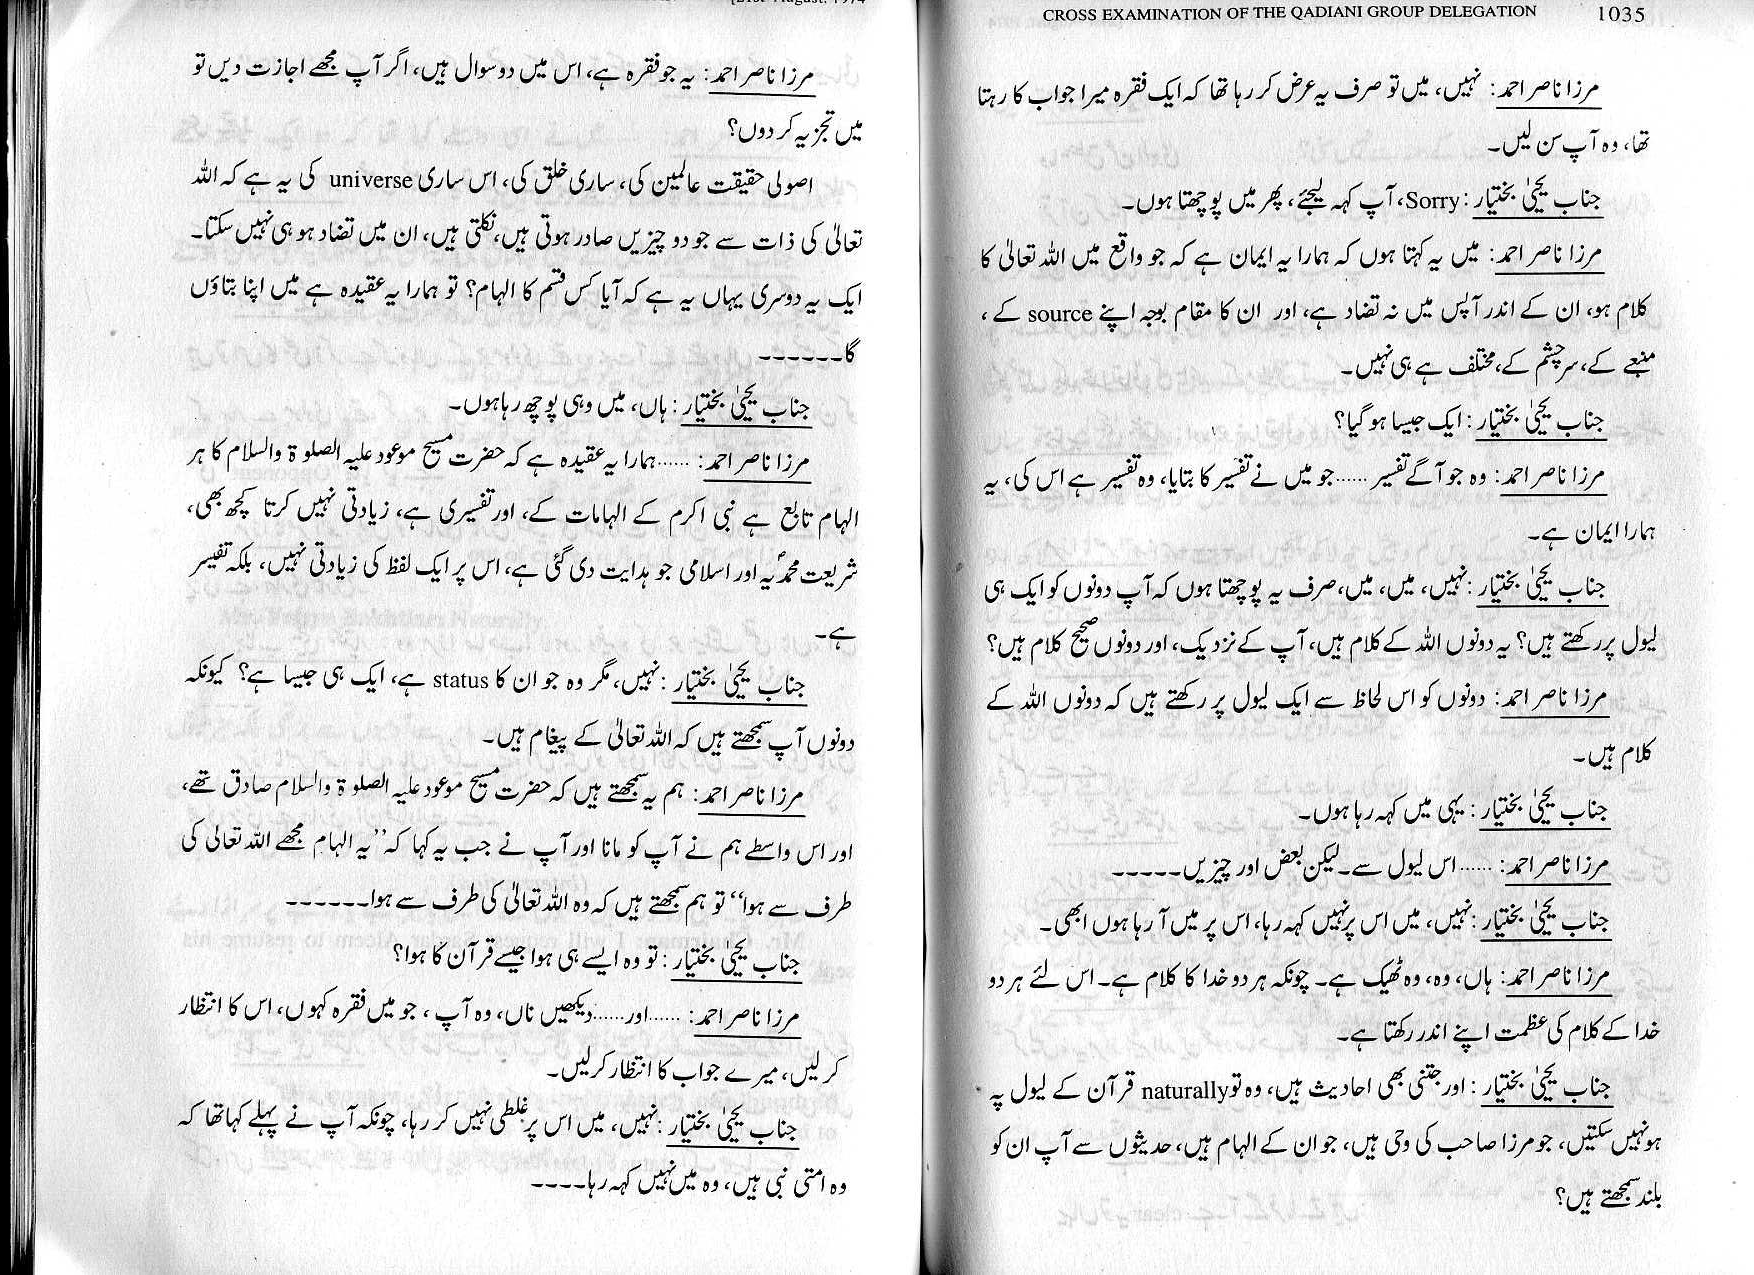 [21st August, 1974
مرزا ناصر احمد: یہ جو فقرہ ہے، اس میں دو سوال ہیں، اگر آپ مجھے اجازت دیں تو
میں تجزیہ کر دوں؟
اصولی حقیقت عالمین کی، ساری خلق کی، اس ساری universe کی یہ ہے کہ اللہ
تعالیٰ کی ذات سے جو دو چیزیں صادر ہوتی ہیں، نکلتی ہیں، ان میں تضاد ہو ہی نہیں سکتا۔
ایک یہ دوسری یہاں یہ ہے کہ آیا کس قسم کا الہام؟ تو ہمارا یہ عقیدہ ہے میں اپنا بتاؤں
گا۔۔۔۔۔۔
جناب یحییٰ بختیار: ہاں، میں وہی پوچھ رہا ہوں۔
مرزا ناصر احمد: ......ہمارا یہ عقیدہ ہے کہ حضرت مسیح موعود علیہ الصلوۃ والسلام کا ہر
الہام تابع ہے نبی اکرم کے الہامات کے، اور تفسیری ہے، زیادتی نہیں کرتا کچھ بھی،
شریعت محمدؐیہ اور اسلامی جو ہدایت دی گئی ہے، اس پر ایک لفظ کی زیادتی نہیں، بلکہ تفسیر
ہے۔
جناب یحییٰ بختیار: نہیں، مگر وہ جو ان کا status ہے، ایک ہی جیسا ہے؟ کیونکہ
دونوں آپ سمجھتے ہیں کہ اللہ تعالیٰ کے پیغام ہیں۔
مرزا ناصر احمد: ہم یہ سمجھتے ہیں کہ حضرت مسیح موعود علیہ الصلوۃ والسلام صادق تھے،
اور اس واسطے ہم نے آپ کو مانا اور آپ نے جب یہ کہا کہ ’’یہ الہام مجھے اللہ تعالیٰ کی
طرف سے ہوا‘‘ تو ہم سمجھتے ہیں کہ وہ اللہ تعالیٰ کی طرف سے ہوا۔۔۔۔۔۔
جناب یحییٰ بختیار: تو وہ ایسے ہی ہوا جیسے قرآن کا ہوا؟
مرزا ناصر احمد: ......اور......دیکھیں ناں، وہ آپ، جو میں فقرہ کہوں، اس کا انتظار
کر لیں، میرے جواب کا انتظار کر لیں۔
جناب یحییٰ بختیار: نہیں، میں اس پر غلطی نہیں کر رہا، چونکہ آپ نے پہلے کہا تھا کہ
وہ امتی نبی ہیں، وہ میں نہیں کہہ رہا۔۔۔۔
CROSS EXAMINATION OF THE QADIANI GROUP DELEGATION 1035
مرزا ناصر احمد: نہیں، میں تو صرف یہ عرض کر رہا تھا کہ ایک فقرہ میرا جواب کا رہتا
تھا، وہ آپ سن لیں۔
جناب یحییٰ بختیار: Sorry، آپ کہہ لیجئے، پھر میں پوچھتا ہوں۔
مرزا ناصر احمد: میں یہ کہتا ہوں کہ ہمارا یہ ایمان ہے کہ جو واقع میں اللہ تعالیٰ کا
کلام ہو، ان کے اندر آپس میں نہ تضاد ہے، اور ان کا مقام بوجہ اپنے source کے،
منبعے کے، سرچشم کے، مختلف ہے ہی نہیں۔
جناب یحییٰ بختیار: ایک جیسا ہو گیا؟
مرزا ناصر احمد: وہ جو آگے تفسیر ......جو میں نے تفسیر کا بتایا، وہ تفسیر ہے اس کی، یہ
ہمارا ایمان ہے۔
جناب یحییٰ بختیار: نہیں، میں، میں، صرف یہ پوچھتا ہوں کہ آپ دونوں کو ایک ہی
لیول پر رکھتے ہیں؟ یہ دونوں اللہ کے کلام ہیں، آپ کے نزدیک، اور دونوں صحیح کلام ہیں؟
مرزا ناصر احمد: دونوں کو اس لحاظ سے ایک لیول پر رکھتے ہیں کہ دونوں اللہ کے
کلام ہیں۔
جناب یحییٰ بختیار: یہی میں کہہ رہا ہوں۔
مرزا ناصر احمد: ......اس لیول سے۔ لیکن بعض اور چیزیں۔۔۔۔۔
جناب یحییٰ بختیار: نہیں، میں اس پر نہیں کہہ رہا، اس پر میں آ رہا ہوں ابھی۔
مرزا ناصر احمد: ہاں، وہ، وہ ٹھیک ہے۔ چونکہ ہر دو خدا کا کلام ہے۔ اس لئے ہر دو
خدا کے کلام کی عظمت اپنے اندر رکھتا ہے۔
جناب یحییٰ بختیار: اور جتنی بھی احادیث ہیں، وہ تو naturally قرآن کے لیول پہ
ہو نہیں سکتیں، جو مرزا صاحب کی وحی ہیں، جو ان کے الہام ہیں، حدیثوں سے آپ ان کو
بلند سمجھتے ہیں؟